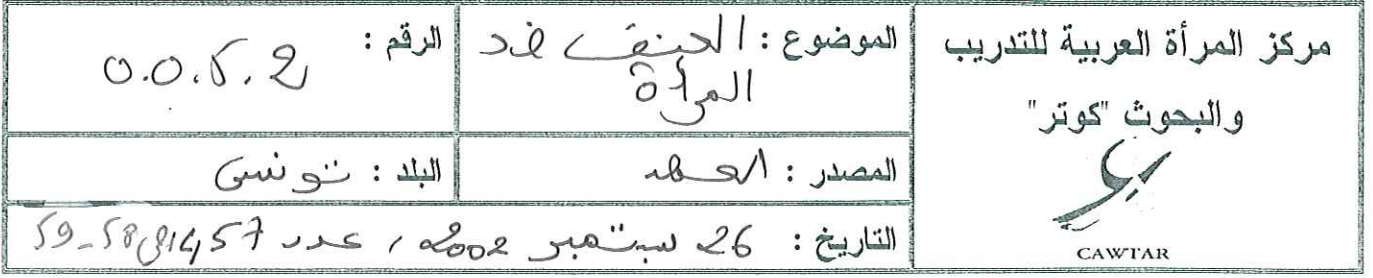 مركز المرأة العربية للتدريب
والبحوث "كوتر"
CAWTAR
الموضوع : العنف ضد
المرأة
الرقم : 0.0.5.2
المصدر : العهد
البلد : تونس
التاريخ : 26 سبتمبر 2002 ، عدد 457 58-59